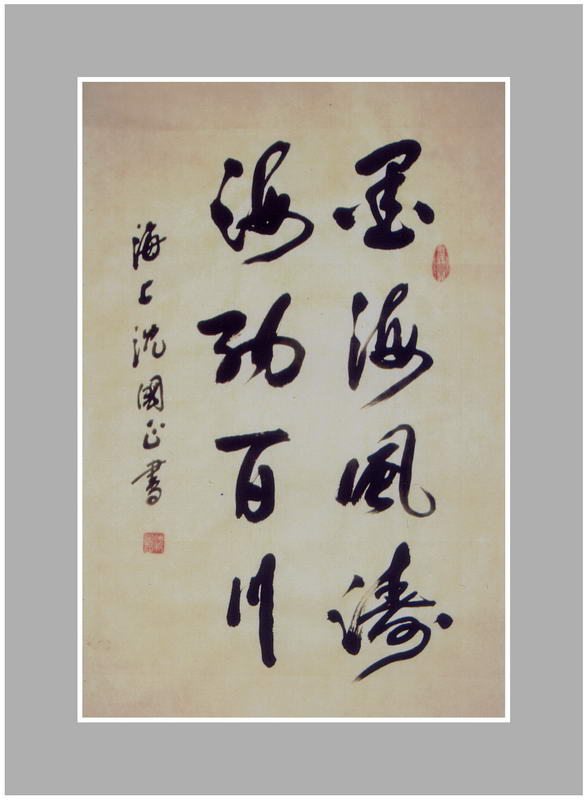 墨海風濤
海納百川
海上沈國正書